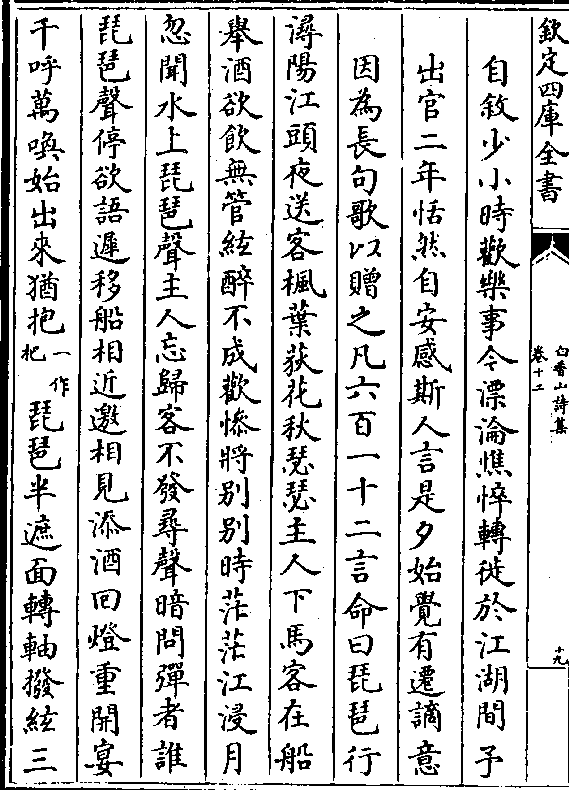 欽定四庫全書
白香山詩集
卷十二
十九
自敘少小時歡樂事今漂淪憔悴轉徙於江湖間予
出官二年恬然自安感斯人言是夕始覺有遷謫意
因為長句歌以贈之凡六百一十二言命曰琵琶行
潯陽江頭夜送客楓葉荻花秋瑟瑟主人下馬客在船
舉酒欲飲無管絃醉不成歡慘將别别時茫茫江浸月
忽聞水上琵琶聲主人忘歸客不發尋聲暗問彈者誰
琵琶聲停欲語遲移船相近邀相見添酒回燈重開宴
千呼萬喚始出來猶抱一作杷琵琶半遮面轉軸撥絃三